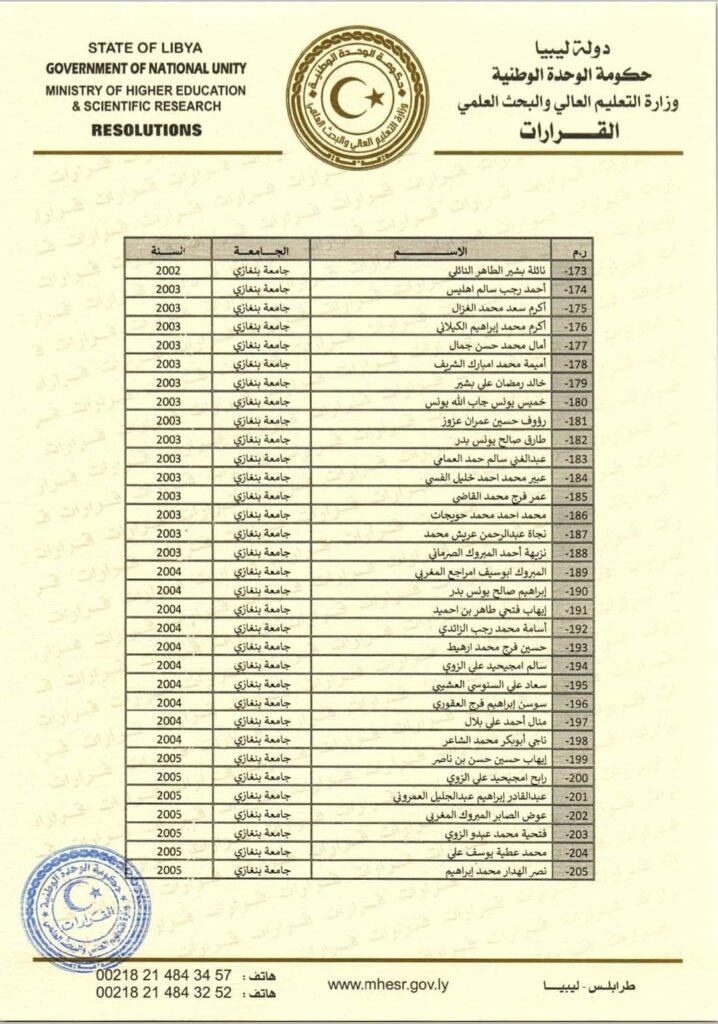 STATE OF LIBYA
GOVERNMENT OF NATIONAL UNITY
MINISTRY OF HIGHER EDUCATION
& SCIENTIFIC RESEARCH
RESOLUTIONS
حكومة الوحدة الوطنية
وزارة التعليم العالي والبحث العلمي
دولة ليبيا
حكومة الوحدة الوطنية
وزارة التعليم العالي والبحث العلمي
القـــرارات
ر.م الاســـــم الجـامعـة السنة
173- نائلة بشير الطاهر النائلي جامعة بنغازي 2002
174- أحمد رجب سالم اهليس جامعة بنغازي 2003
175- أكرم سعد محمد الغزال جامعة بنغازي 2003
176- أكرم محمد إبراهيم الكيلاني جامعة بنغازي 2003
177- أمال محمد حسن جمال جامعة بنغازي 2003
178- أميمة محمد امبارك الشريف جامعة بنغازي 2003
179- خالد رمضان علي بشير جامعة بنغازي 2003
180- خميس يونس جاب الله يونس جامعة بنغازي 2003
181- رؤوف حسين عمران عزوز جامعة بنغازي 2003
182- طارق صالح يونس بدر جامعة بنغازي 2003
183- عبدالغني سالم حمد العمامي جامعة بنغازي 2003
184- عبير محمد احمد خليل الفسي جامعة بنغازي 2003
185- عمر فرج محمد القاضي جامعة بنغازي 2003
186- محمد احمد محمد حويجات جامعة بنغازي 2003
187- نجاة عبدالرحمن عريش محمد جامعة بنغازي 2003
188- نزيهة أحمد المبروك الصرماني جامعة بنغازي 2003
189- المبروك ابوسيف امراجع المغربي جامعة بنغازي 2004
190- إبراهيم صالح يونس بدر جامعة بنغازي 2004
191- إيهاب فتحي طاهر بن احميد جامعة بنغازي 2004
192- أسامة محمد رجب الزائدي جامعة بنغازي 2004
193- حسين فرج محمد ارهيط جامعة بنغازي 2004
194- سالم امجيحيد علي الزوي جامعة بنغازي 2004
195- سعاد علي السنوسي العشيبي جامعة بنغازي 2004
196- سوسن إبراهيم فرج العقوري جامعة بنغازي 2004
197- منال أحمد علي بلال جامعة بنغازي 2004
198- ناجي أبوبكر محمد الشاعر جامعة بنغازي 2004
199- إيهاب حسين حسن بن ناصر جامعة بنغازي 2005
200- رابح امجيحيد علي الزوي جامعة بنغازي 2005
201- عبدالقادر إبراهيم عبدالجليل العمروني جامعة بنغازي 2005
202- عوض الصابر المبروك المغربي جامعة بنغازي 2005
203- فتحية محمد عبدو الزوي جامعة بنغازي 2005
204- محمد عطية يوسف علي جامعة بنغازي 2005
205- نصر الهدار محمد إبراهيم جامعة بنغازي 2005
حكومة الوحدة الوطنية
القرارات
وزارة التعليم العالي والبحث العلمي
هاتف : 00218 21 484 34 57
هاتف : 00218 21 484 32 52
www.mhesr.gov.ly
طرابلس - ليبيا